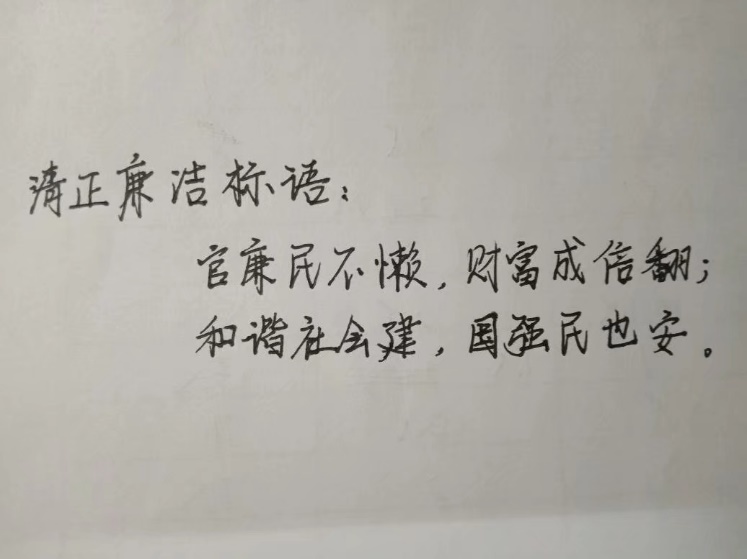 清正廉洁标语：
官廉民不懒，财富成信翻；
和谐社会建，国强民也安。